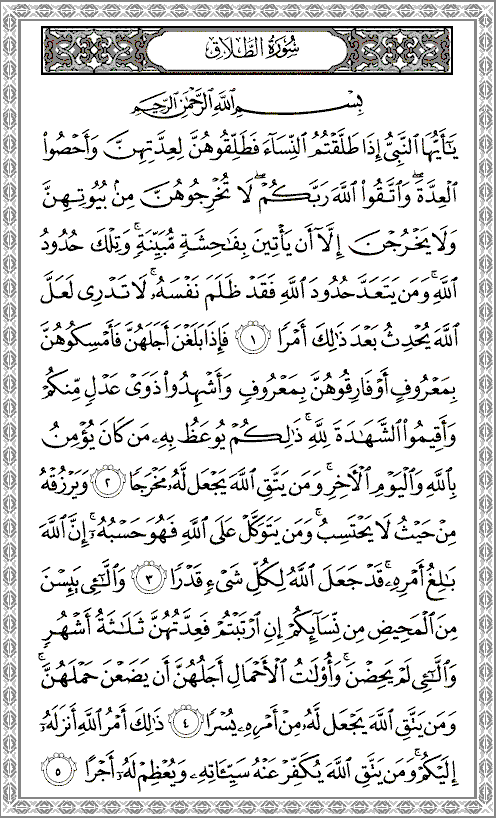 سُورَةُ الطَّلَاقِ
بِسْمِ اللَّهِ الرَّحْمَٰنِ الرَّحِيمِ
يَٰٓأَيُّهَا النَّبِيُّ إِذَا طَلَّقْتُمُ النِّسَآءَ فَطَلِّقُوهُنَّ لِعِدَّتِهِنَّ وَأَحْصُوا۟
الْعِدَّةَ ۖ وَاتَّقُوا۟ اللَّهَ رَبَّكُمْ ۖ لَا تُخْرِجُوهُنَّ مِنۢ بُيُوتِهِنَّ
وَلَا يَخْرُجْنَ إِلَّآ أَن يَأْتِينَ بِفَٰحِشَةٍ مُّبَيِّنَةٍ ۚ وَتِلْكَ حُدُودُ
اللَّهِ ۚ وَمَن يَتَعَدَّ حُدُودَ اللَّهِ فَقَدْ ظَلَمَ نَفْسَهُۥ ۚ لَا تَدْرِى لَعَلَّ
اللَّهَ يُحْدِثُ بَعْدَ ذَٰلِكَ أَمْرًا ١ فَإِذَا بَلَغْنَ أَجَلَهُنَّ فَأَمْسِكُوهُنَّ
بِمَعْرُوفٍ أَوْ فَارِقُوهُنَّ بِمَعْرُوفٍ وَأَشْهِدُوا۟ ذَوَىْ عَدْلٍ مِّنكُمْ
وَأَقِيمُوا۟ الشَّهَٰدَةَ لِلَّهِ ۚ ذَٰلِكُمْ يُوعَظُ بِهِۦ مَن كَانَ يُؤْمِنُ
بِاللَّهِ وَالْيَوْمِ الْءَاخِرِ ۚ وَمَن يَتَّقِ اللَّهَ يَجْعَل لَّهُۥ مَخْرَجًا ٢ وَيَرْزُقْهُ
مِنْ حَيْثُ لَا يَحْتَسِبُ ۚ وَمَن يَتَوَكَّلْ عَلَى اللَّهِ فَهُوَ حَسْبُهُۥٓ ۚ إِنَّ اللَّهَ
بَٰلِغُ أَمْرِهِۦ ۚ قَدْ جَعَلَ اللَّهُ لِكُلِّ شَىْءٍ قَدْرًا ٣ وَالَّٰٓـِٔى يَئِسْنَ
مِنَ الْمَحِيضِ مِن نِّسَآئِكُمْ إِنِ ارْتَبْتُمْ فَعِدَّتُهُنَّ ثَلَٰثَةُ أَشْهُرٍ
وَالَّٰٓـِٔى لَمْ يَحِضْنَ ۚ وَأُو۟لَٰتُ الْأَحْمَالِ أَجَلُهُنَّ أَن يَضَعْنَ حَمْلَهُنَّ ۚ
وَمَن يَتَّقِ اللَّهَ يَجْعَل لَّهُۥ مِنْ أَمْرِهِۦ يُسْرًا ٤ ذَٰلِكَ أَمْرُ اللَّهِ أَنزَلَهُۥٓ
إِلَيْكُمْ ۚ وَمَن يَتَّقِ اللَّهَ يُكَفِّرْ عَنْهُ سَيِّـَٔاتِهِۦ وَيُعْظِمْ لَهُۥٓ أَجْرًا ٥